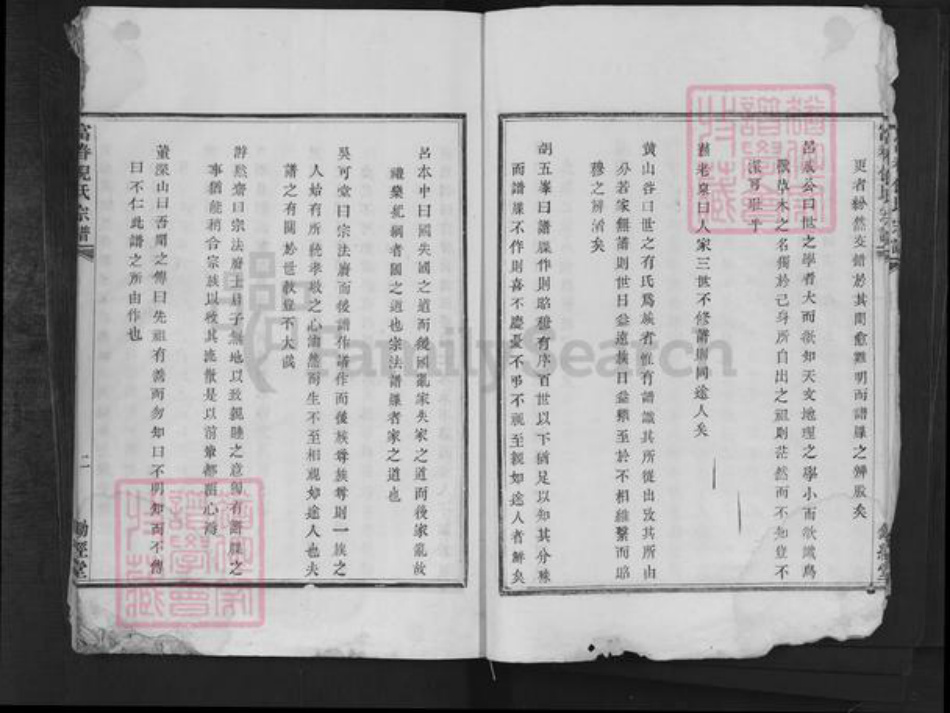 更者紛然交錯於其間愈難明而譜牒之辨散矣
呂成公曰世之學者大而欲知天文地理之學小而欲識鳥
獸草木之名獨於己身所自出之祖則茫然而不知豈不
深可耻乎
老泉曰人家三世不修譜則同途人矣
黃山谷曰世之有氏爲族者惟有譜識其所從出攷其所由
分若家無譜則世日益遠族日益繁至於不相維繫而昭
穆之辨淆矣
胡五峯曰譜牒作則昭穆有序百世以下猶足以知其分殊
而譜牒不作則喜不慶憂不弔不視至親如途人者鮮矣
呂本中曰國失國之道而後國亂家失家之道而後家亂故
禮樂紀綱者國之道也宗法譜牒者家之道也
吳可堂曰宗法廢而後譜作譜作而後族尊族尊則一族之
人始有所統孝敬之心油然而生不至相視如途人也夫
譜之有關於世教豈不大哉
游默齋曰宗法廢士君子無地以致親睦之意獨有譜牒之
事猶能稍合宗族以收其渙散是以前輩都留心焉
董深山曰吾聞之傳曰先祖有善而勿知曰不明知而不傳
曰不仁此譜之所由作也
富春倪氏宗譜
二
勤經堂
FamilySearch